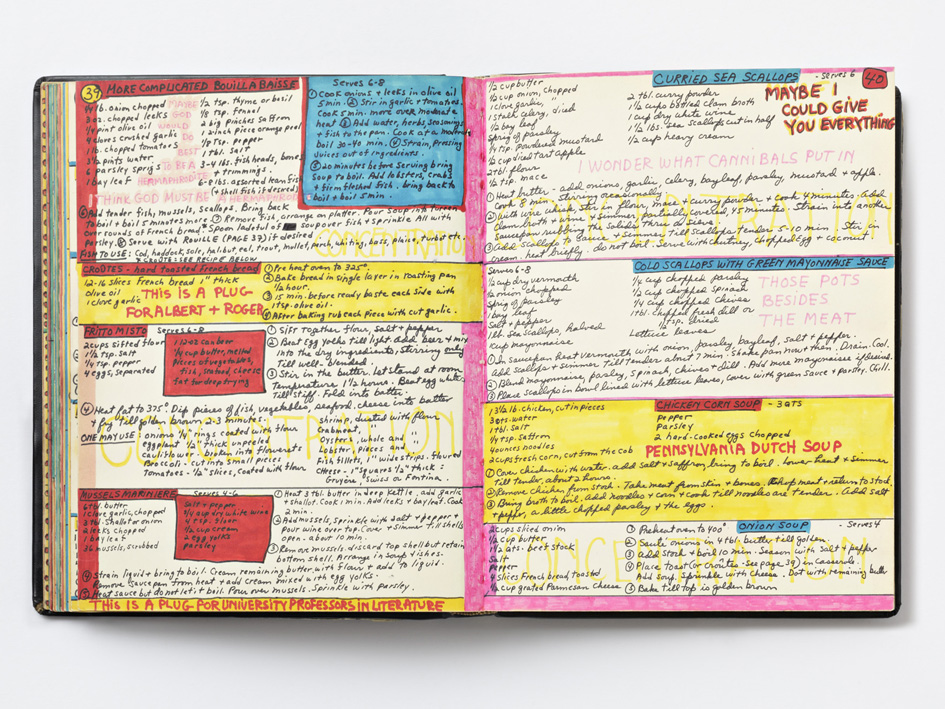 39 MORE COMPLICATED BOUILLABAISSE
3/4 lb. onion chopped
3 oz. chopped leeks
1/4 pint olive oil
4 cloves crushed garlic
1 lb. chopped tomatoes
3 1/2 pints water
6 parsley sprigs
1 bay leaf
MAYBE
GOD
WOULD
DO
BEST
TO BE A
HERMAPHRODITE
I THINK GOD MUST BE A HERMAPHRODITE
1/2 tsp. thyme or basil
1/8 tsp. fennel
2 big pinches saffron
2 inch piece orange peel
1/8 tsp. pepper
1 tbl. salt
3-4 lbs. fish heads, bones
+ trimmings.
6-8 lbs. assorted lean fish
(+ shell fish if desired)
Serves 6-8
① Cook onions & leeks in olive oil
5 min. ② Stir in garlic + tomatoes.
Cook 5 min. more over moderate
heat ③ Add water, herbs, seasonings
+ fish to the pan. Cook at a moderate
boil 30-40 min. ④ Strain, pressing
juices out of ingredients.
⑤ 20 minutes before serving bring
soup to boil. Add lobsters, crabs
+ firm fleshed fish. bring back to
boil + boil 5 min.
⑥ Add tender fish, mussels, scallops. Bring back
to boil + boil 5 minutes more. ⑦ Remove fish, arrange on platter. Pour soup in tureen
over rounds of French bread. * Spoon ladleful of soup over fish + sprinkle. All with
parsley. ⑧ Serve with ROUILLE (PAGE 37) if desired
FISH TO USE: Cod, haddock, sole, halibut, eel, trout, mullet, perch, whiting, bass, plaice, turbot etc.
* CROUTES: SEE RECIPE BELOW
CONCENTRATION
CROÛTES - hard toasted French bread
12-16 slices French bread 1" thick
olive oil
1 clove garlic
THIS IS A PLUG
FOR ALBERT + ROGER
① Pre heat oven to 325°.
② Bake bread in single layer in roasting pan
1/2 hour.
③ 15 min. before ready baste each side with
1 tsp. olive oil.
④ After baking rub each piece with cut garlic.
FRITTO MISTO Serves 6-8
2 cups sifted flour
1 1/2 tsp. salt
1/4 tsp. pepper
4 eggs separated
1 12 oz can beer
1/4 cup butter, melted
Pieces of vegetables,
fish, seafood, cheese
fat for deep frying
① Sift together flour, salt + pepper
② Beat egg yolks till light. add beer + mix
into the dry ingredients, stirring only
till well-blended.
③ Stir in the butter. Let stand at room
temperature 1 1/2 hours. Beat egg whites
till stiff. Fold into batter.
④ Heat fat to 375°. Dip pieces of fish, vegetables, seafood, cheese into batter
+ fry till golden brown 2-3 minutes.
ONE MAY USE: onions 1/4" rings coated with flour
eggplant 1/2" thick unpeeled
Cauliflower broken into flowerets
Broccoli - cut into small pieces
Tomatoes - 1/2" slices, coated with flour
shrimp, dusted with flour
Crabmeat, " "
Oysters, whole and "
Lobster, pieces and "
Fish fillets, 1" wide strips. floured
Cheese - 1" squares 1/2" thick:
Gruyère, Swiss or Fontina.
CONCENTRATION
MUSSELS MARINIERE Serves 4-6
6 tbl. butter
1 clove garlic, chopped
3 tbl. shallot or onion
2 leeks chopped
1 bay leaf
36 mussels, scrubbed
Salt + pepper
3/4 cup dry white wine
4 tsp. flour
1/2 cup cream
2 egg yolks
parsley
① Heat 3 tbl. butter in deep kettle. add garlic
+ shallot. Cook 1 min. Add leeks + bayleaf. Cook
2 min.
② Add mussels, sprinkle with salt + pepper +
pour wine over top. Cover + simmer till shells
open. about 10 min.
③ Remove mussels. discard top shell but retain
bottom shell. Arrange in soup dishes.
④ Strain liquid + bring to boil. Cream remaining butter with flour + add to liquid.
Remove saucepan from heat + add cream mixed with egg yolks.
⑤ Heat sauce but do not let it boil. Pour over mussels. Sprinkle with parsley.
THIS IS A PLUG FOR UNIVERSITY PROFESSORS IN LITERATURE
CURRIED SEA SCALLOPS - Serves 6 40
1/2 cup butter
1/2 cup onion, chopped
1 clove garlic, "
1 stalk celery, diced
1/2 bay leaf
Sprig of parsley
1/4 tsp. powdered mustard
1/2 cup diced tart apple
2 tbl. flour
1/2 tsp. mace
2 tbl. curry powder
1 1/2 cups bottled clam broth
1 cup dry white wine
1 1/2 lbs. sea scallops cut in half
1/2 cup heavy cream
MAYBE I
COULD GIVE
YOU EVERYTHING
I WONDER WHAT CANNIBALS PUT IN
① Heat butter - add onions, garlic, celery, bay leaf, parsley, mustard + apple.
Cook 8 min. stirring occasionally
② With wire whisk, stir in flour, mace + curry powder + cook 4 minutes. Add
clam broth + wine + simmer partially covered, 45 minutes. Strain into another
saucepan rubbing the solids thru a sieve.
③ Add scallops to sauce + simmer till scallops tender 5-10 min. Stir in
cream. heat briefly. do not boil. Serve with chutney, chopped egg + coconut.
COLD SCALLOPS WITH GREEN MAYONNAISE SAUCE
Serves 6-8
1/2 cup dry vermouth
1/2 onion chopped
Sprig of parsley
1 bay leaf
Salt + pepper
1 lb. sea scallops, halved
1 cup mayonnaise
1/4 cup chopped parsley
1/2 cup chopped spinach
1/4 cup chopped chives
1 tbl. chopped fresh dill or
1/2 tsp. dried
Lettuce leaves
THOSE POTS
BESIDES
THE MEAT
① In saucepan heat vermouth with onion, parsley, bayleaf, salt + pepper.
Add scallops + simmer till tender about 7 min. Shake pan now + then. Drain. Cool.
② Blend mayonnaise, parsley, spinach, chives + dill. Add more mayonnaise if desired.
③ Place scallops in bowl lined with lettuce leaves, cover with green sauce + parsley. Chill.
CHICKEN CORN SOUP - 3 QTS
1 3 1/2 lb. chicken, cut in pieces
3 qts. water
1 tbl. salt
1/4 tsp. saffron
4 ounces noodles
2 cups fresh corn, cut from the cob
Pepper
Parsley
2 hard-cooked eggs chopped
PENNSYLVANIA DUTCH SOUP
① Cover chicken with water. add salt + saffron bring to boil. lower heat + simmer
till tender, about 2 hours.
② Remove chicken from stock. Take meat from skin + bones. Chop meat + return to stock.
③ Bring broth to boil. Add noodles + corn + cook till noodles are tender. Add salt
+ pepper, a little chopped parsley + the eggs.
ONION SOUP - Serves 4
2 cups sliced onion
1/4 cup butter
1 1/2 qts. beef stock
Salt
Pepper
4 slices French bread toasted
1/2 cup grated Parmesan cheese
① Preheat oven to 400°
② Sauté onions in 4 tbl. butter till golden
③ Add stock + boil 10 min. Season with salt + pepper
④ Place toast (or croûtes - see page 39) in casserole.
Add soup. Sprinkle with cheese. Dot with remaining butter
⑤ Bake till top is golden brown
CONCENTRATION